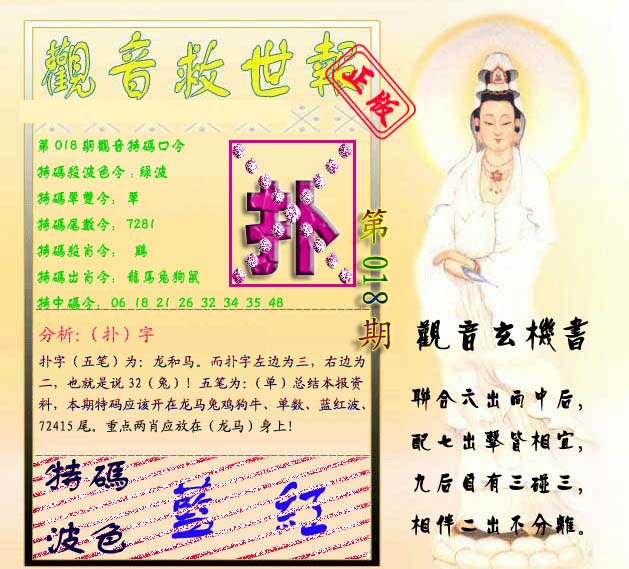 觀音救世報
正版
第018期觀音特碼口令
特碼殺波色令:綠波
特碼單雙令: 單
特碼尾數令: 7281
特碼殺肖令: 鷄
特碼出肖令: 龍馬兔狗鼠
特中碼令: 06 18 21 26 32 34 35 48
扑
第018期
分析:（扑）字
扑字（五笔）为：龙和马。而扑字左边为三，右边为
二，也就是说 32（兔）！五笔为：(单）总结本报资
料，本期特码应该开在龙马兔鸡狗牛、单数、蓝红波、
72415 尾。重点两肖应放在（龙马）身上！
特碼
波色
藍 紅
觀音玄機書
聯合六出而中后，
配七出擊皆相宜，
九后目有三碰三，
相伴二出不分離。